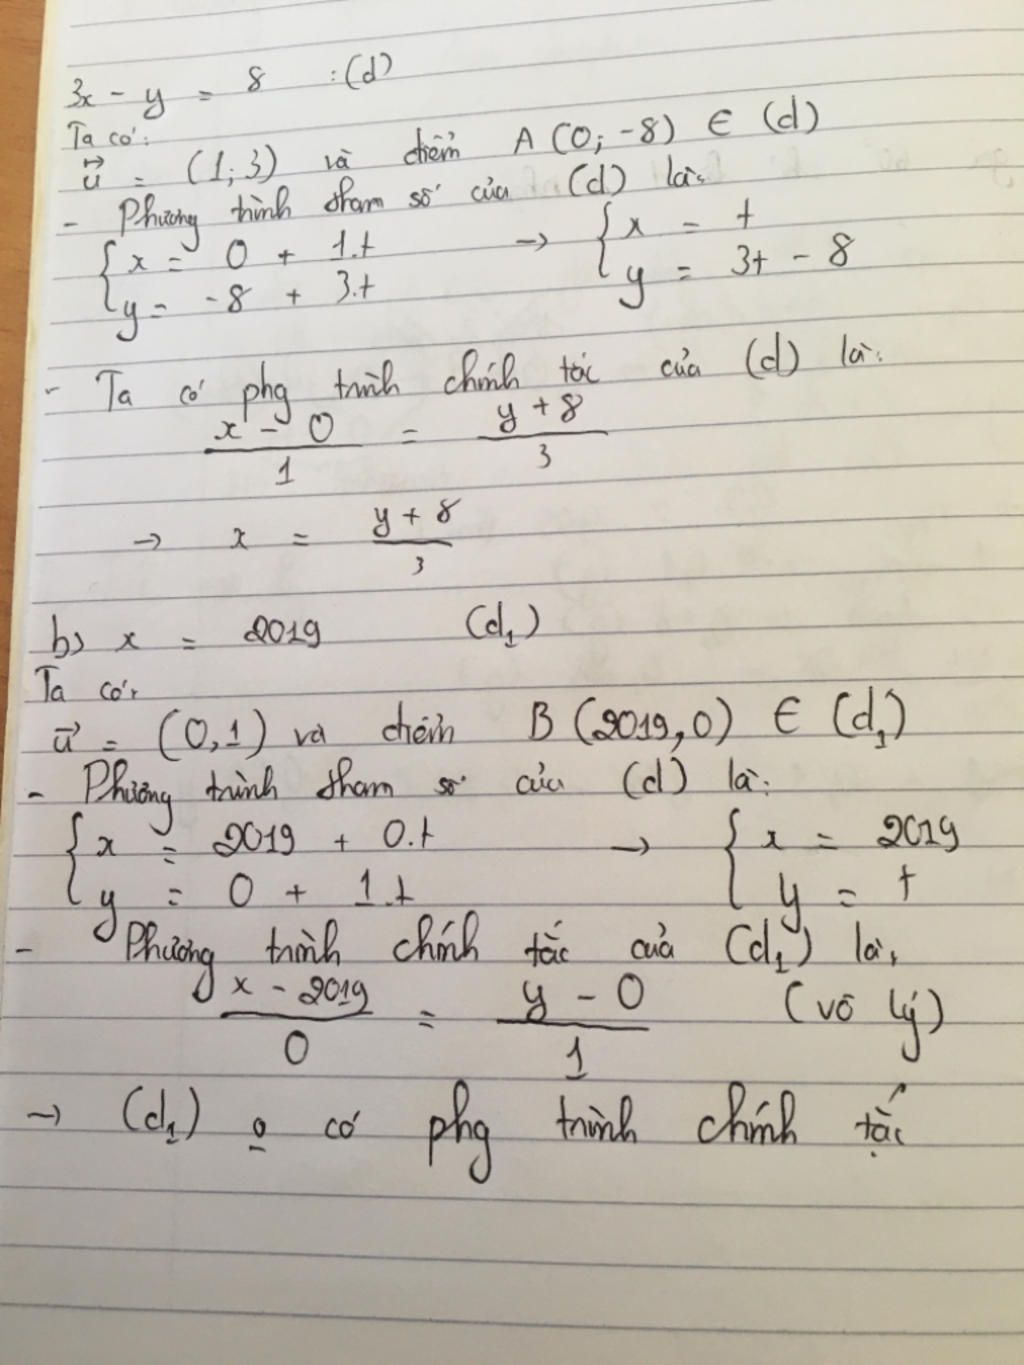 3x - y = 8 : (d)
Ta có:
u⃗ = (1; 3) và điểm A (0; -8) ∈ (d)
- Phương trình tham số của (d) là:
{ x = 0 + 1.t → { x = t
y = -8 + 3.t y = 3t - 8
- Ta có phg trình chính tắc của (d) là:
x - 0 / 1 = y + 8 / 3
→ x = y + 8 / 3
b) x = 2019 (d₁)
Ta có:
u⃗ = (0,1) và điểm B (2019,0) ∈ (d₁)
- Phương trình tham số của (d) là:
{ x = 2019 + 0.t → { x = 2019
y = 0 + 1.t y = t
- Phương trình chính tắc của (d₁) là,
x - 2019 / 0 = y - 0 / 1 (vô lý)
→ (d₁) o có phg trình chính tắc